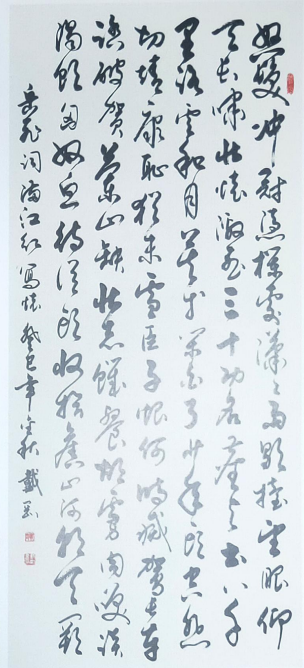 怒髮冲冠憑欄處瀟瀟雨歇擡望眼仰
天長嘯壯懷激烈三十功名塵與土八千
里路雲和月莫等閒白了少年頭空悲
切靖康恥猶未雪臣子恨何時滅駕長車
踏破賀蘭山缺壯志飢餐胡虜肉笑談
渴飲匈奴血待從頭收拾舊山河朝天闕
岳飛詞滿江紅寫懷癸巳年秋戴